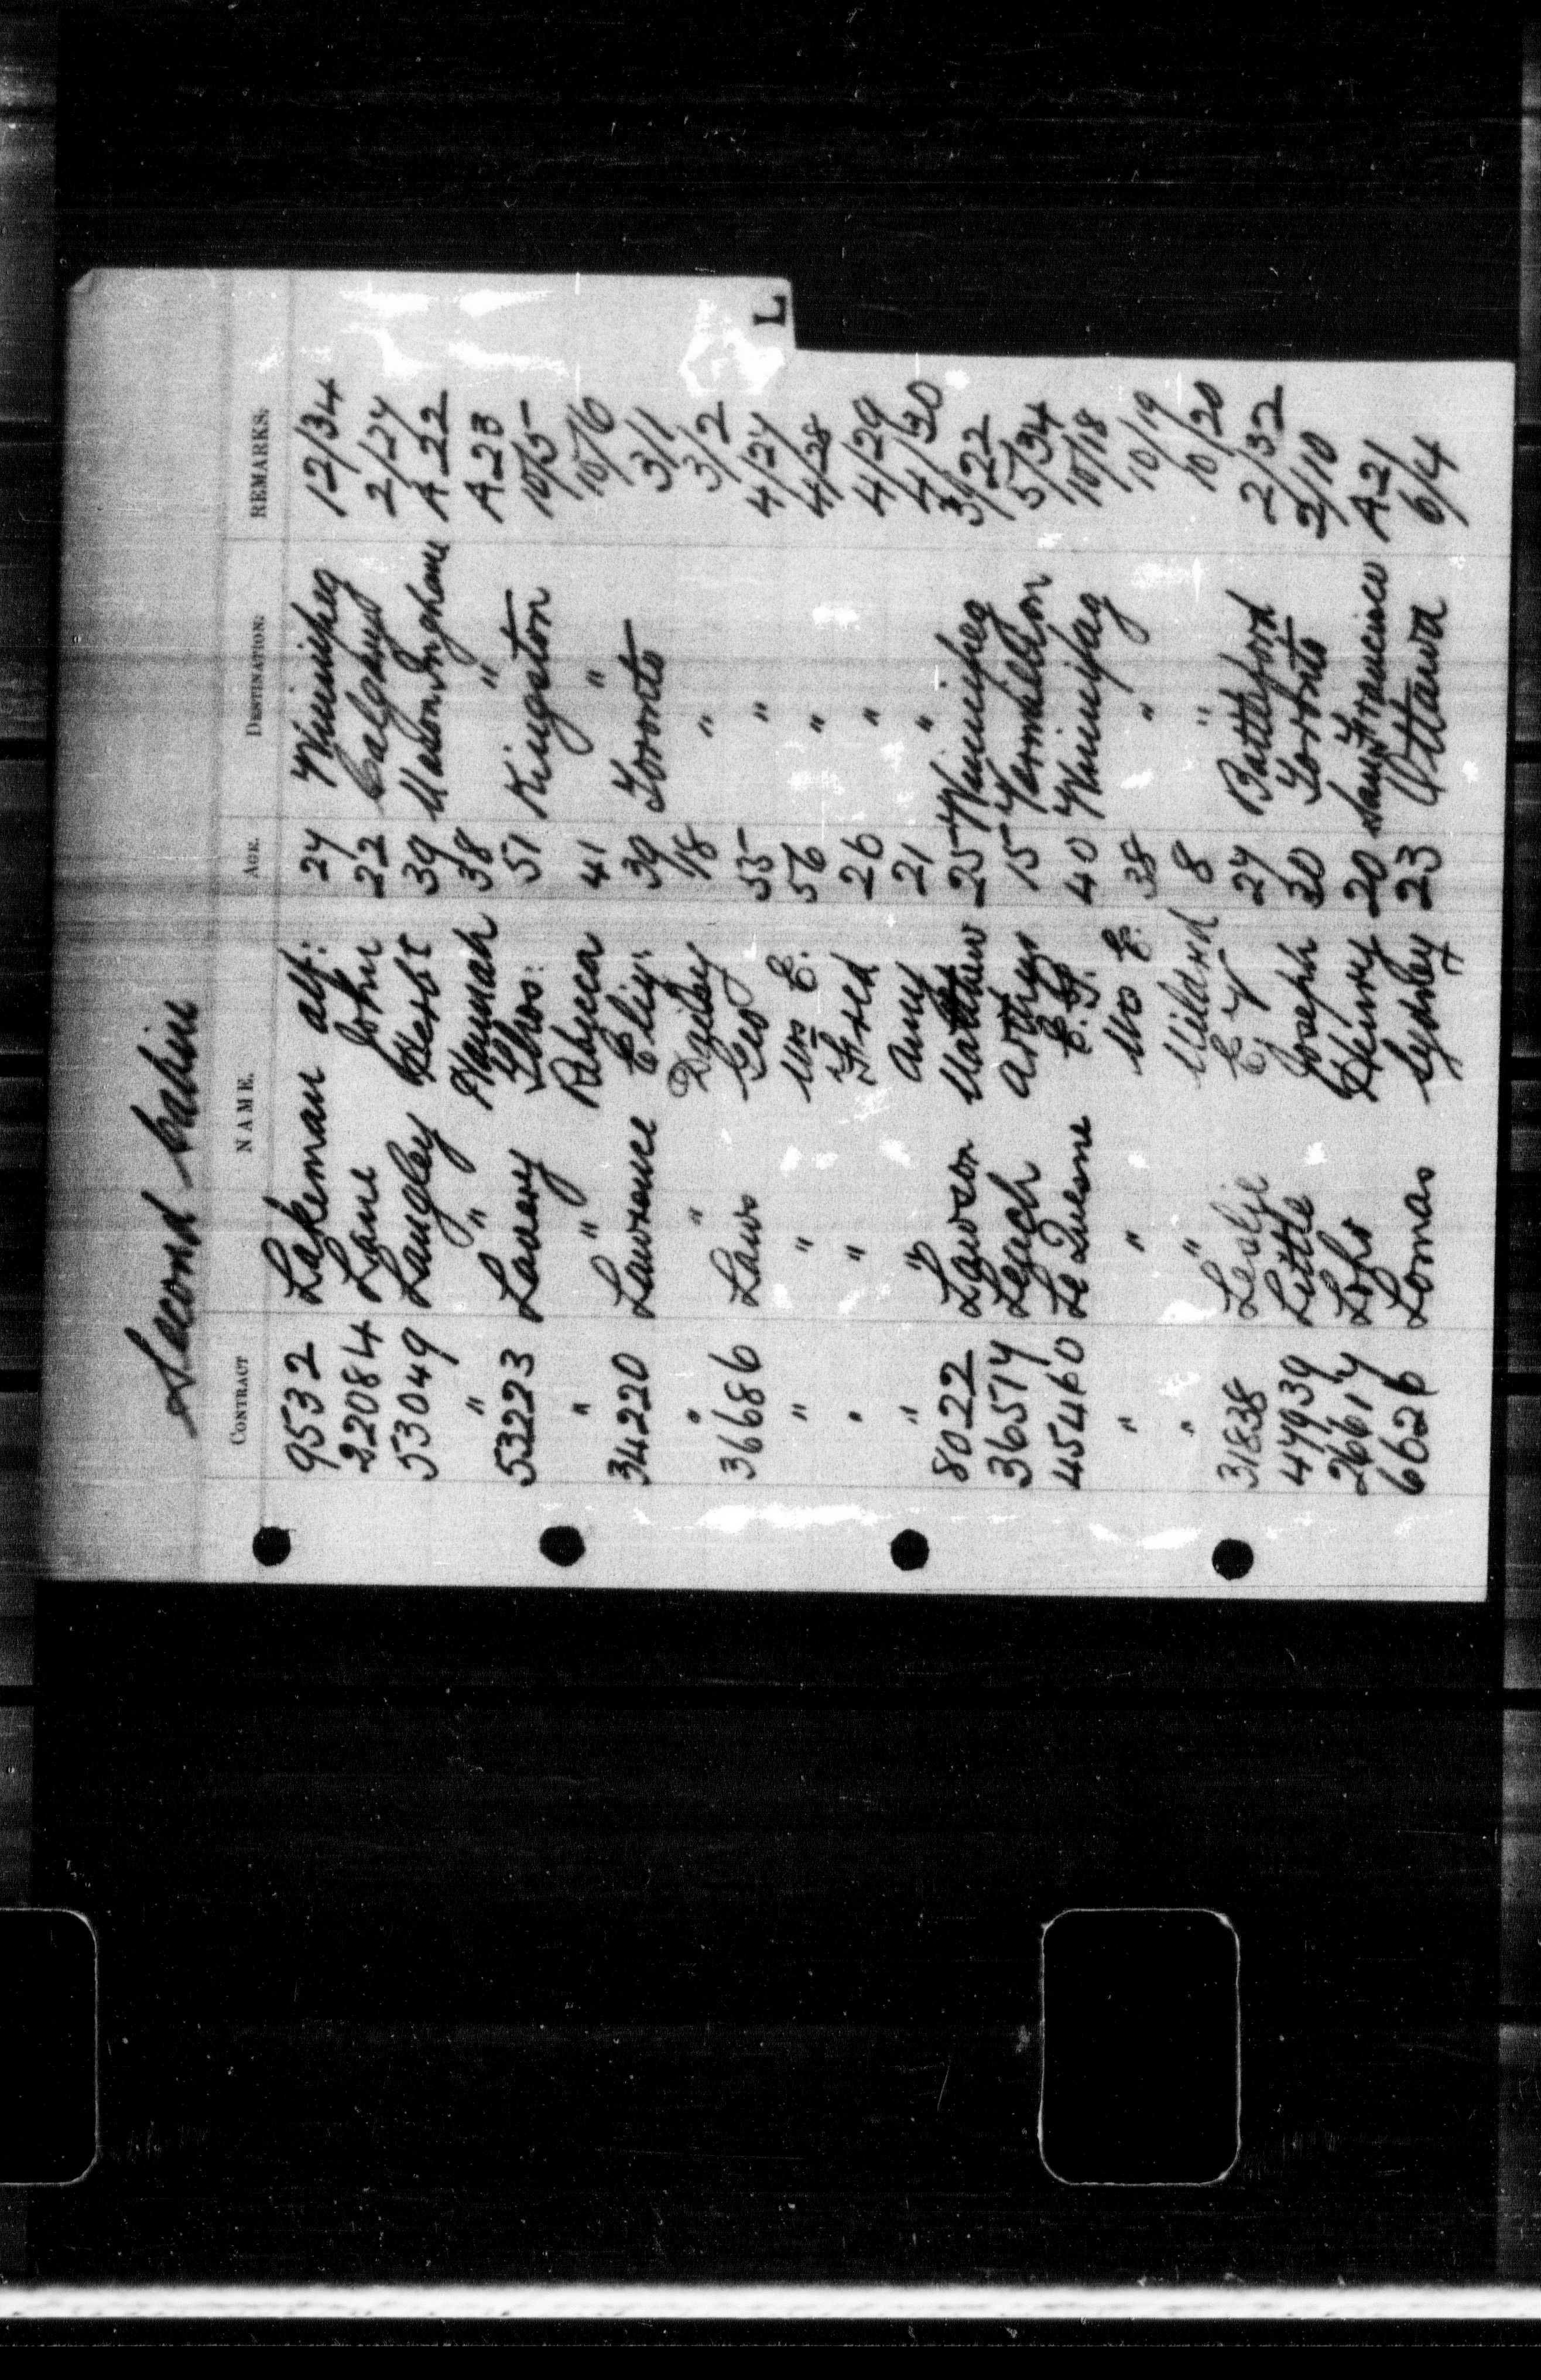 Second Cabin
CONTRACT NAME. AGE. DESTINATION. REMARKS.
9532 Lakeman Alf: 27 Winnipeg 12/34
22084 Lane John 22 Calgary 2/27
53049 Langley Herbt 39 A22
" " Hannah 38 " A23
53223 Lavery Thos: 51 Kingston 10/5
" " Rebecca 41 " 10/6
34220 Lawrence Eliz: 39 Toronto 3/1
" " Daisy 18 " 3/2
36686 Laws Geo 55 " 4/27
" " Mrs E. 56 " 4/28
" " Fred 26 " 4/29
" " Amy 21 " 4/30
8022 Lawson Matthew 25 Winnipeg 3/22
36517 Leech Arthur 15 Vermillion 5/34
45460 Le Quesne 40 Winnipeg 10/18
" " Mrs E. 38 " 10/19
" " Mildred 8 " 10/20
31838 Leslie 27 Battleford 2/32
47939 Little Joseph 30 Toronto 2/10
26617 Henry 20 San Francisco A21
6626 Lomas Sydney 23 Ottawa 6/4
L